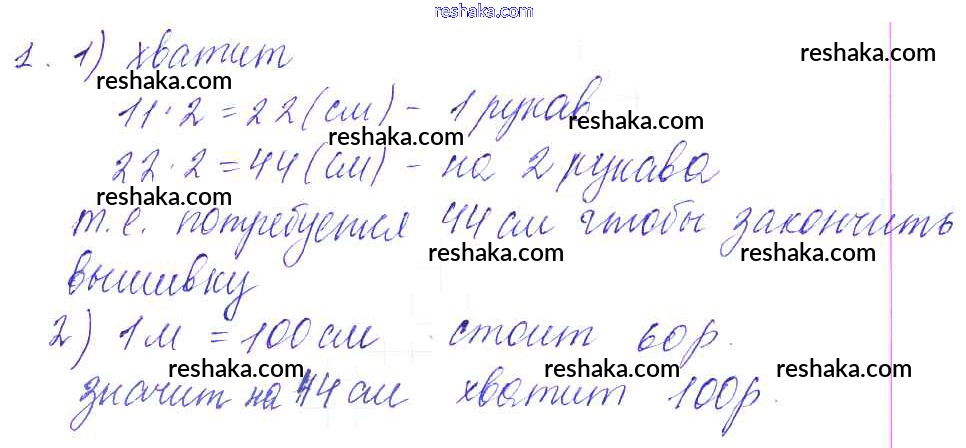 reshaka.com
1. 1) хватит
reshaka.com
reshaka.com
11·2=22(см)- 1 рукав
reshaka.com
22·2=44(см)- на 2 рукава
reshaka.com
т.е. потребуется 44 см чтобы закончить
reshaka.com
reshaka.com
вышивку
2) 1м = 100см стоит 60р.
reshaka.com
reshaka.com
reshaka.com
значит на 44 см хватит 100р.